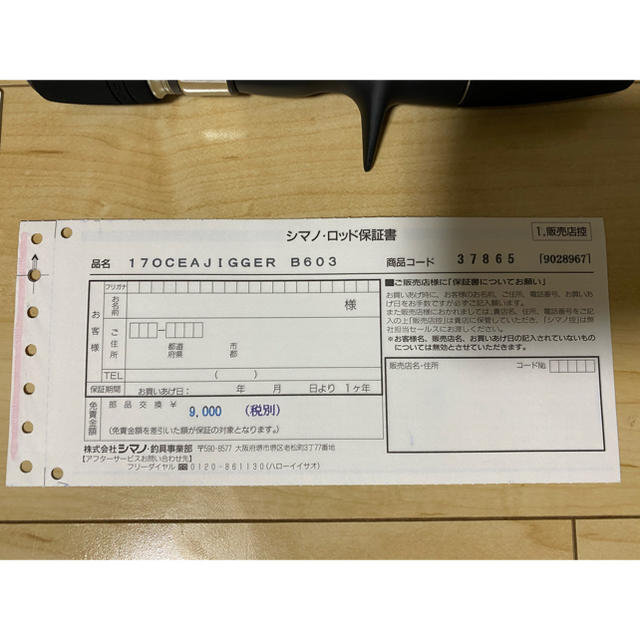 シマノ・ロッド保証書
1.販売店控
品名 17OCEAJIGGER B603
商品コード 37865 [9028967]
フリガナ
お名前 様
お客様
ご住所 都道府県 市郡
TEL ( )
保証期間 お買いあげ日: 年 月 日より 1ヶ年
免責金額 部品交換 ¥ 9,000 (税別)
(免責金額を差引いた額が保証の対象となります。)
株式会社シマノ・釣具事業部 〒590-8577 大阪府堺市堺区老松町3丁77番地
【アフターサービスお問い合わせ先】
フリーダイヤル 0120-861130(ハローイイサオ)
■ご販売店様に「保証書についてお願い」
お買いあげ時に、お客様のお名前、ご住所、電話番号、お買いあげ日をお手数ですが必ずご記入願います。
また販売店様におかれましては、貴店名、住所、電話番号をご記入の上「販売店控」は貴店に保管していただき、「シマノ控」は弊社担当セールスにお渡しください。
※お客様名、販売店名、お買いあげ日の記入されていないものについては無効とさせていただきます。
販売店名・住所 コード№